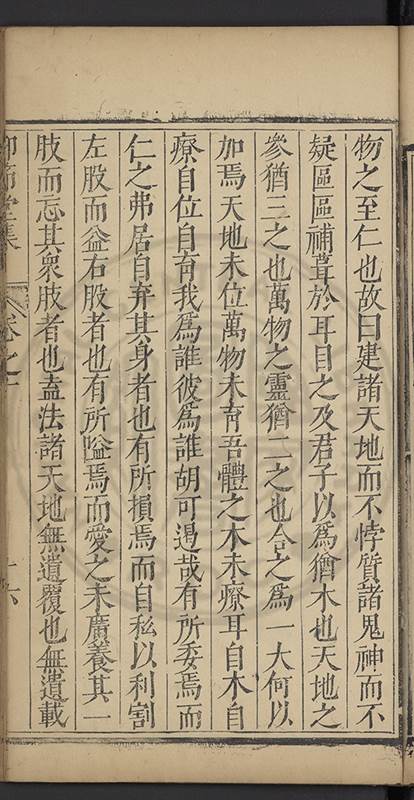 物之至仁也故曰建諸天地而不悖質諸鬼神而不
疑區區補葺於耳目之及君子以為猶木也天地之
參猶三之也萬物之靈猶二之也合之為一大何以
加焉天地未位萬物未育吾體之木未療耳自木自
療自位自育我為誰彼為誰胡可遏哉有所委焉而
仁之弗居自弃其身者也有所損焉而自私以利割
左股而益右股者也有所隘焉而愛之未廣養其一
肢而忘其衆肢者也盖法諸天地無遺覆也無遺載
堂集 卷之 十六